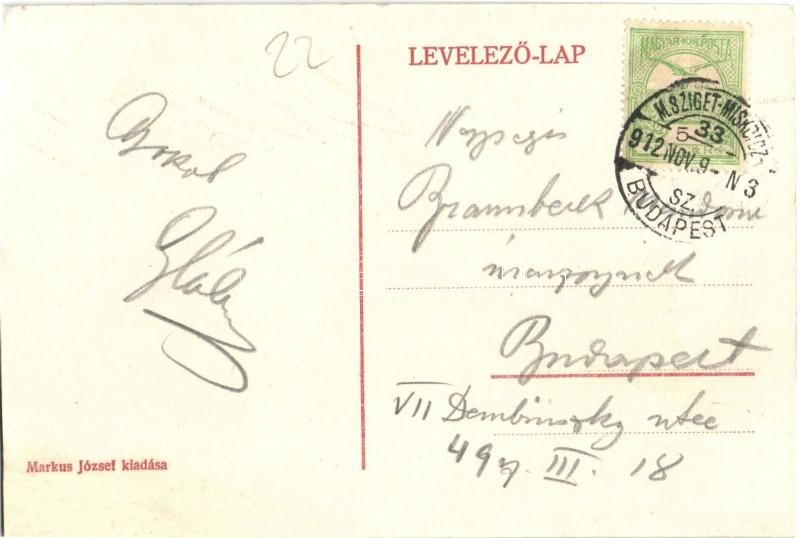 22
LEVELEZŐ-LAP
MAGYAR KIR. POSTA
M.SZIGET-MISKOLCZ
33
5
912 NOV. 9 - N 3
SZ.
BUDAPEST
Csókol
Braunberek
Budapest
VII Dembinszky utca
49 III. 18
Markus József kiadása